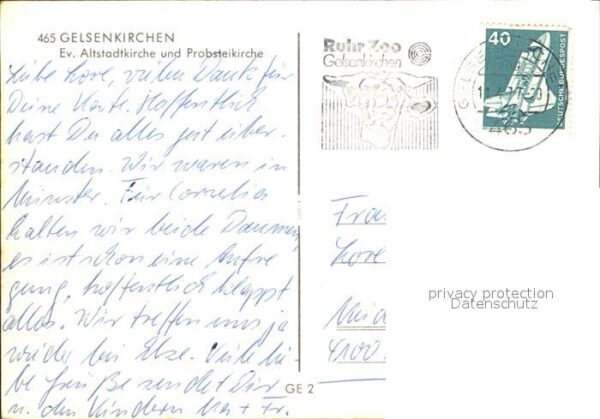 465 GELSENKIRCHEN
Ev. Altstadtkirche und Probsteikirche
Liebe Lore, vielen Dank für
Deine Karte. Hoffentlich
hast Du alles gut über-
standen. Wir waren in
Münster. Für Cornelia
halten wir beide Daumen,
es ist schon eine Aufre
gung, hoffentlich klappt
alles. Wir treffen uns ja
wieder bei Viele lie-
be Grüße sendet Dir
u. den Kindern
GE 2
Ruhr Zoo
Gelsenkirchen
40
DEUTSCHE BUNDESPOST
465
Frau
Lore
4100
privacy protection
Datenschutz